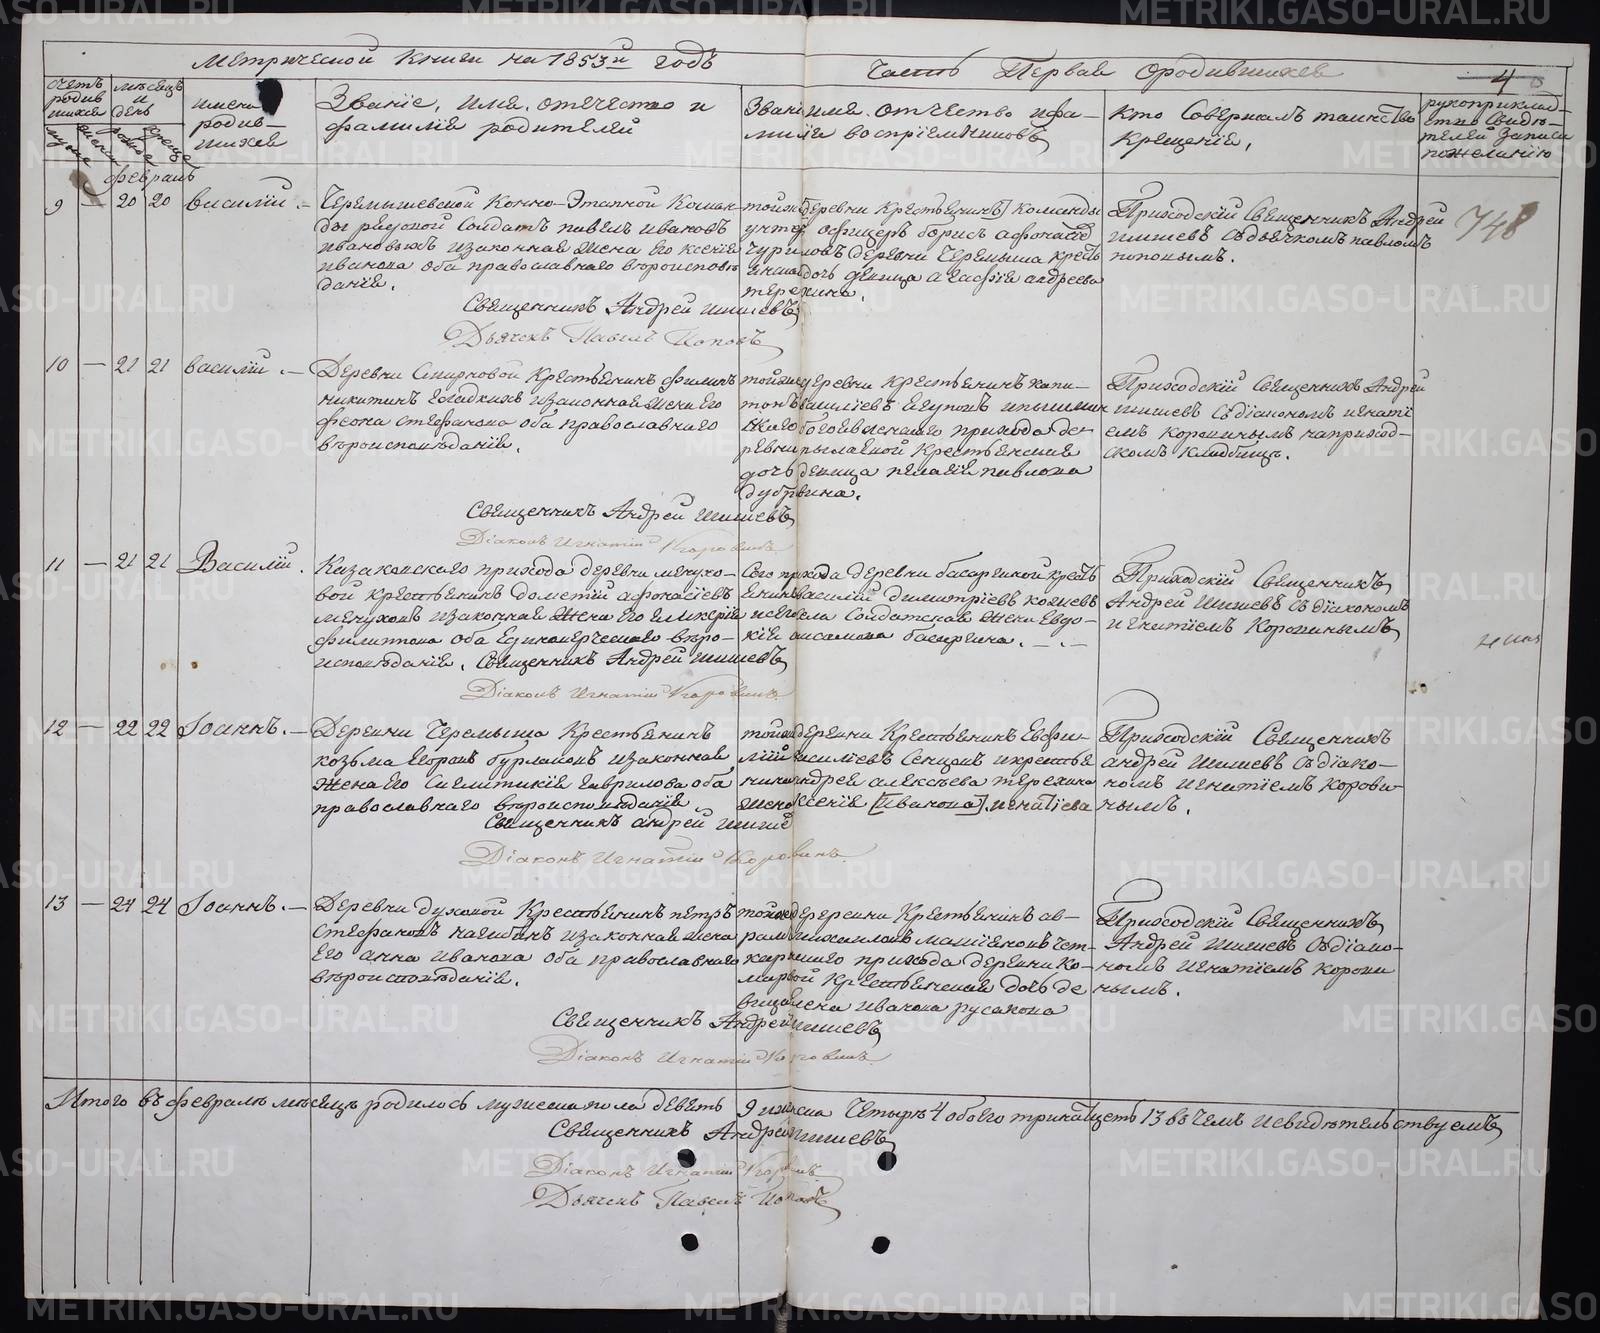 Метрической книги на 1853й годъ
Часть Первая о родившихся
4
Счетъ родившихся
мужеска
женска
Месяцъ и день
рожденія
крещенія
имена родившихся
Званіе, имя, отечество и фамилія родителей
Званіе имя, отчество и фамилія воспріемниковъ
Кто совершалъ таинство крещенія,
рукоприкладство свидѣтелей записи по желанію
февраль
9 — 20 20 василій. —
Черемышевской Конно-Этапной Команды рядовой Солдатъ павелъ ивановъ
ивановыхъ и законная жена его ксенія
иванова оба православнаго вѣроисповѣданія.
той же деревни крестьянинъ команды
унтеръ офицеръ борисъ афонасіевъ
чуриловъ деревни Черемыша крестьянская
дочь девица агафія андреева
терехина.
Приходскій Священникъ Андрей
шишевъ съ дьячкомъ павломъ
поповымъ.
748
Священникъ Андрей шишевъ
Дьячекъ Павелъ Поповъ
10 — 21 21 василій. —
Деревни Смирновой Крестьянинъ филипъ
никитинъ и законная жена его
феона стефанова оба православнаго
вѣроисповѣданія.
той же деревни крестьянинъ капитонъ
василіевъ и пышминскаго
богоявленскаго прихода деревни
крестьянская
дочь девица пелагія павлова
дубровина.
Приходскій Священникъ Андрей
шишевъ съ діакономъ игнатіемъ
коровинымъ на приходскомъ кладбищѣ.
Священникъ Андрей шишевъ
Діаконъ Игнатій Коровинъ
11 — 21 21 Василій.
Казаковскаго прихода деревни мечуховой
крестьянинъ дометій афонасіевъ
мечуховъ и законная жена его гликерія
филиппова оба Единовѣрческаго вѣроисповѣданія.
Священникъ Андрей шишевъ
Сего прихода деревни басаргиной крестьянинъ
василій димитріевъ
солдатская жена Евдокія
басаргина. —.—
Приходскій Священникъ
Андрей шишевъ съ діакономъ
игнатіемъ Коровинымъ
Діаконъ Игнатій Коровинъ
12 — 22 22 Іоаннъ. —
Деревни Черемыша Крестьянинъ
козьма Егоровъ бурлаковъ и законная
жена его Синклитикія гаврилова оба
православнаго вѣроисповѣданія.
той же деревни Крестьянинъ Евфимій
василіевъ Сенцовъ и крестьянина
андрея алексѣева терехина
жена ксенія [иванова]. игнатіева
Приходскій Священникъ
андрей шишевъ съ діакономъ
игнатіемъ коровинымъ.
Священникъ андрей шишевъ
Діаконъ Игнатій Коровинъ
13 — 24 24 Іоаннъ. —
Деревни духовой Крестьянинъ петръ
стефановъ нагибинъ и законная жена
Его анна иванова оба православнаго
вѣроисповѣданія.
той же деревни Крестьянинъ
михаиловъ
прихода деревни комаровой
Крестьянская дочь девица
елена иванова русакова
Приходскій Священникъ
Андрей шишевъ съ діакономъ
игнатіемъ коровинымъ.
Священникъ Андрей шишевъ
Діаконъ Игнатій Коровинъ
Итого въ февралѣ мѣсяцѣ родилось мужеска пола девять 9 женска Четыре 4 обоего тринатцеть 13 въ чемъ и свидѣтельствуемъ
Священникъ Андрей шишевъ
Діаконъ Игнатій Коровинъ
Дьячекъ Павелъ Поповъ
METRIKI.GASO-URAL.RU